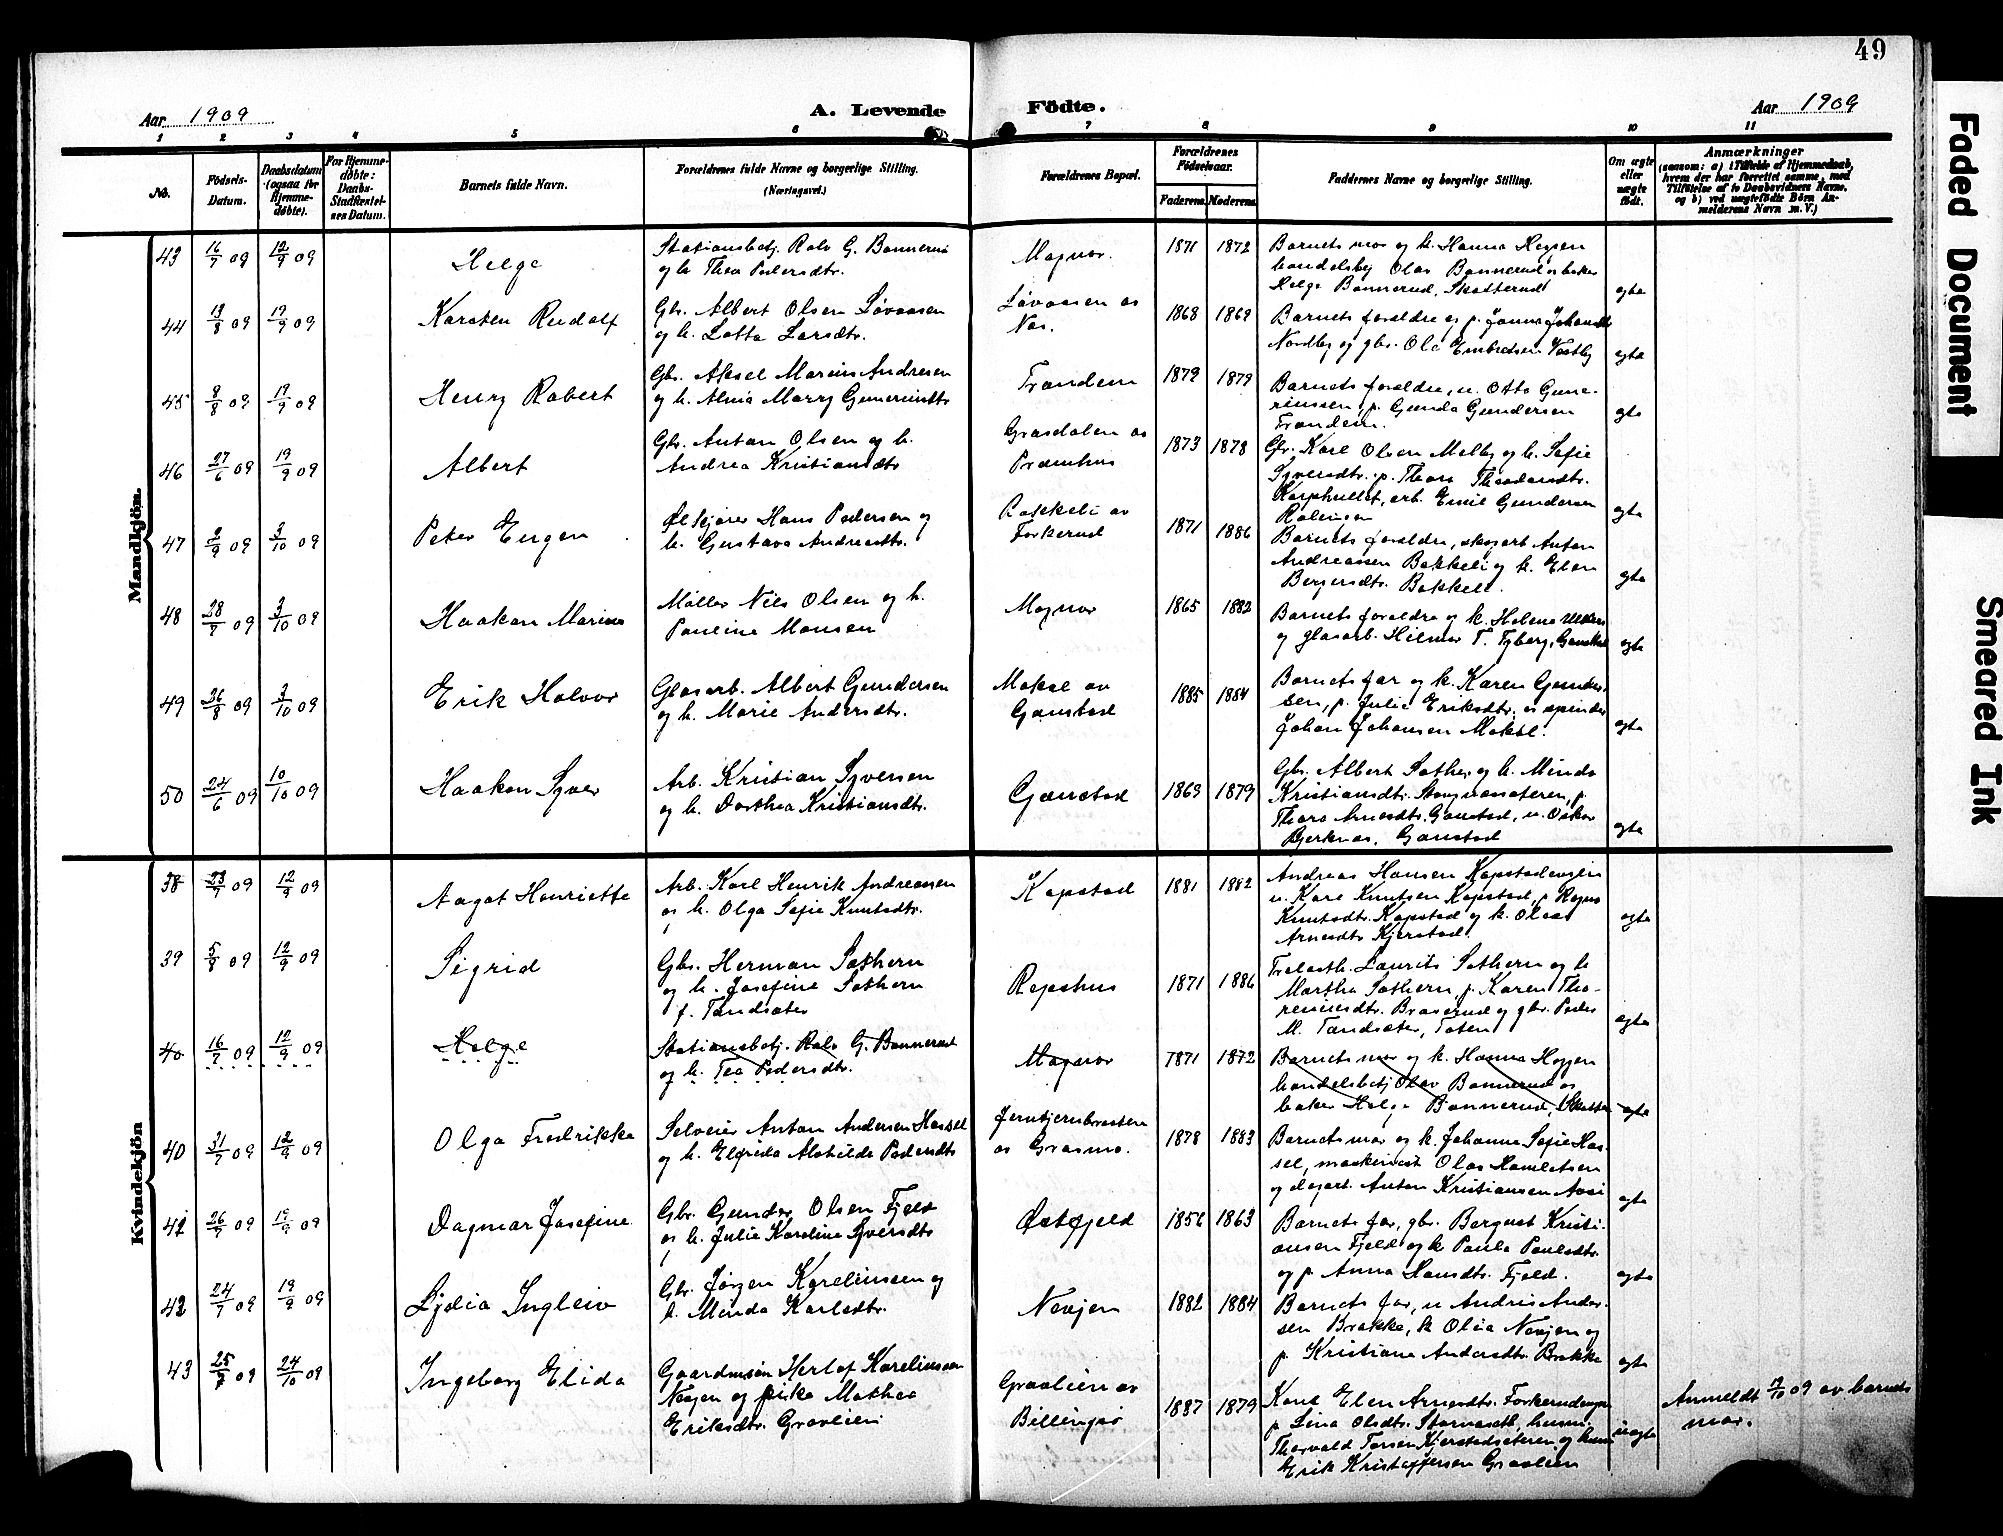 49
Aar 1909 A. Levende Födte. Aar 1909
1 2 3 4 5 6 7 8 9 10 11
No. Födsels-Datum. Daabsdatum (ogsaa for Hjemme-døbte). For Hjemme-døbte: Daabs-Stadfæstel-ses Datum. Barnets fulde Navn. Forældrenes fulde Navne og borgerlige Stilling. (Næringsvei.) Forældrenes Bopæl. Forældrenes Födselsaar. Faderens. Moderens. Faddernes Navne og borgerlige Stilling. Om ægte eller uægte født. Anmærkninger (saasom: a) i Tilfælde af Hjemmedaab, hvem der har forrettet samme, med Tilföielse af to Daabsvidners Navne, og b) ved uægtefödte Börn Anmelderens Navn m. V.)
Mandkjön.
43 16/7 09 12/9 09 Helge
Stationsbetj. Rolv G. Bonnerud
og h. Thea Pedersdtr.
Magnor. 1871 1872
Barnets mor og k. Hanna
handelsbetj Olav Bonnerud os baker
Helge Bonnerud, Skotterud
egte
44 13/8 09 19/9 09 Karsten Rudolf
Gbr. Albert Olsen Løvaasen
og h. Lotta Larsdtr.
Løvaasen av
Nor. 1868 1869
Barnets foreldre og p. Janna Johansdtr
Nordby og gbr. Ole Embretsen Vestby
egte
45 8/8 09 19/9 09 Henry Robert
Gbr. Aksel Marius Andresen
og h. Alma Marry
Trandem 1879 1879
Barnets foreldre, u. Otto
p. Gunda Gundersen
Trandem.
egte
46 27/6 09 19/9 09 Albert
Gbr. Anton Olsen og h.
Andrea Kristiansdtr
Grasdalen av
Pramhus 1873 1878
Gbr. Karl Olsen Melby og h. Sofie
Syversdtr. p. Thora Theodorsdtr.
arb. Emil Gundersen
egte
47 2/9 09 3/10 09 Peter Eugen
Hans Pedersen og
h. Gustava Andreasdtr.
Bakkeli av
Forkerud 1871 1886
Barnets foreldre, skogarb Anton
Andreassen Bakkeli og k. Elen
Bergersdtr. Bakkeli.
egte
48 28/7 09 3/10 09 Haakon Marius
Møller Nils Olsen og h.
Pauline Monsen
Magnor 1865 1882
Barnets foreldre og k. Helene
og glasarb. Hilmar T. Tyberg,
egte
49 26/8 09 3/10 09 Erik Halvor
Glasarb. Albert Gundersen
og h. Marie Andersdtr.
Moksl av
Gaustad 1885 1884
Barnets far og k. Karen Gunder-
sen, p. Julie Eriksdtr. os spinder
Johan Johansen Moksl.
egte
50 24/6 09 10/10 09 Haakon Syver
Arb. Kristian Syversen
og h. Dorthea Kristiansdtr.
Gaustad 1869 1879
Gbr. Albert Sother og h. Minda
Kristiansdtr. p.
Thora Arnesdtr. Gaustad, u. Oskar
Bjerknes, Gaustad
egte
Kvindekjön
38 23/7 09 12/9 09 Aagot Henriette
Arb. Karl Henrik Andreassen
os h. Olga Sofie Knutsdtr.
Kapstad 1881 1882
Andreas Hansen
u. Kare Knutsen Kapstad, p
Knutsdtr. Kapstad og k. Olea
Arnesdtr Kjerstad.
egte
39 5/8 09 12/9 09 Sigrid
Gbr. Herman Sæthern
og h. Josefine Sæthern
f. Tandsæter
Repshus 1871 1886
Laurits Sæthern og h
Martha Sæthern, p. Karen Tho-
Braserud og gbr. Peder
M. Tandsæter, Toten
egte
40 16/7 09 12/9 09 Helge
Stationsbetj. Rolv G. Bonnerud
og h. Tea Pedersdtr.
Magnor 1871 1872
Barnets mor og k. Hanna
handelsbetj Olav Bonnerud os
baker Helge Bonnerud,
egte
40 31/7 09 12/9 09 Olga Fredrikke
Selveier Anton Andersen Hassel
og h. Elfrida Mathilde Pedersdtr
av Grasmo. 1878 1883
Barnets mor og k. Johanna Sofie Has-
sel, maskinist Olav
og dagarb. Anton Kristiansen
egte
41 26/7 09 19/9 09 Dagmar Josefine
Gbr. Gunder Olsen Fjeld
os h. Julie Karoline Syversdtr
Østfjeld 1856 1863
Barnets far, gbr. Bergust Kristi-
ansen Fjeld og k Paula Paulsdtr.
og p. Anna Hansdtr. Fjeld.
egte
42 24/7 09 19/9 09 Lydia Ingleiv
Gbr. Jørgen Karelinssen og
h. Minda Karlsdtr.
Nevjen 1882 1884
Barnets far, u Andris Ander-
sen Brakke, k Olea Nevjen og
p. Kristiane Andersdtr. Brakke
egte
43 25/7 09 24/10 09 Ingeborg Elida
Gaardmsøn Herlof Karelinssen
Nevjen og pike Mathea
Eriksdtr. Graaleien
Graaleien av
Billingsø 1887 1879
Kone Elen Arnesdtr.
p. Lina Olsdtr.
Thorvald Torsen Kjerstadsæteren og
Erik Kristoffersen Graaleien
uegte
Anmeldt 7/10 09 av barnets
mor.
Faded Document
Smeared Ink